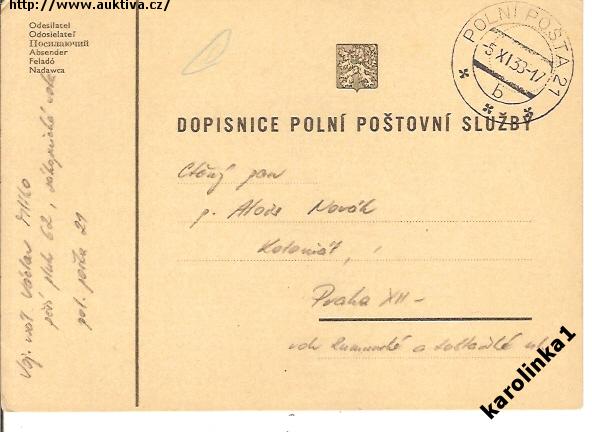 http://www.auktiva.cz/
Odesílatel
Odosielateľ
Посилаючий
Absender
Feladó
Nadawca
POLNÍ POŠTA 21
-5.XI.38-17
b
DOPISNICE POLNÍ POŠTOVNÍ SLUŽBY
Ctěný pan
p. Alois Novák
Praha XII-
roh Rumunské a
Voj. Václav
pěší pluk 62,
pol. pošta 21
karolinka1